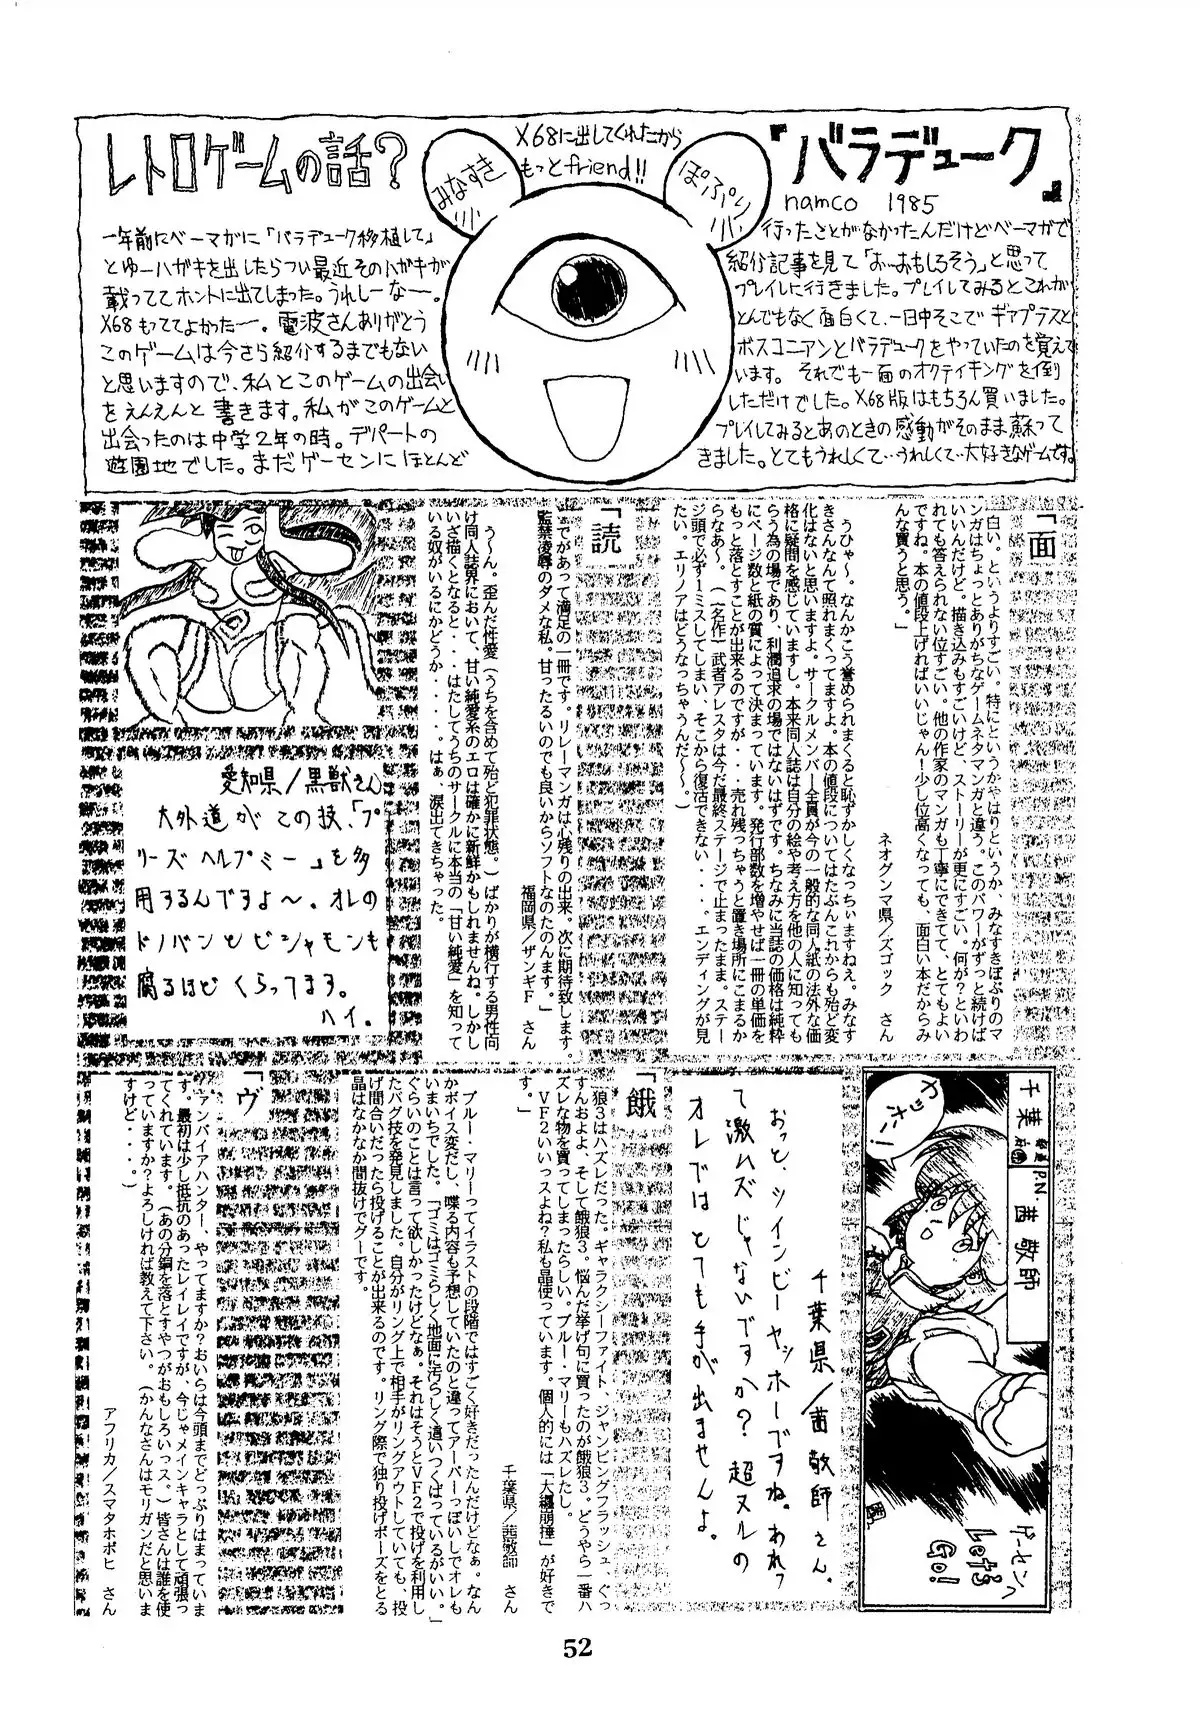 レトロゲームの話?
みなすき
X68に出してくれたから
もっとfriend!!
ぽぷり
『バラデューク』
namco 1985
一年前にベーマガに「バラデューク移植して」
とゆーハガキを出したらつい最近そのハガキが
載っててホントに出てしまった。うれしーなー。
X68もっててよかったー。電波さんありがとう
このゲームは今さら紹介するまでもない
と思いますので、私とこのゲームの出会い
をえんえんと書きます。私がこのゲームと
出会ったのは中学2年の時。デパートの
遊園地でした。まだゲーセンにほとんど
行ったことがなかったんだけどベーマガで
紹介記事を見て「おーおもしろそう」と思って
プレイしに行きました。プレイしてみるとこれが
とんでもなく面白くて、一日中そこでギャプラスと
ボスコニアンとバラデュークをやっていたのを覚えて
います。それでも一面のオクティキングを倒
しただけでした。X68版はもちろん買いました。
プレイしてみるとあのときの感動がそのまま蘇って
きました。とてもうれしくて‥うれしくて‥大好きなゲームです。
「面
白い。というよりすごい。特にというかやはりというか、みなすきぽぷりのマ
ンガはちょっとありがちなゲームネタマンガと違う。このパワーがずっと続けば
いいんだけど、描き込みもすごいけど、ストーリーが更にすごい。何が?といわ
れても答えられない位すごい。他の作家のマンガも丁寧にできてて、とてもよい
ですね。本の値段上げればいいじゃん!少し位高くなっても、面白い本だからみ
んな買うと思う。」
ネオグンマ県/ズゴック さん
うひゃ〜。なんかこう誉められまくると恥ずかしくなっちぃますねえ。みなす
きさんなんて照れまくってますよ。本の値段についてはたぶんこれからも殆ど変
化はないと思いますよ。サークルメンバー全員が今の一般的な同人紙の法外な価
格に疑問を感じていますし、本来同人誌は自分の絵や考え方を他の人に知っても
らう為の場であり、利潤追求の場ではないはずです。ちなみに当誌の価格は純粋
にページ数と紙の質によって決まっています。発行部数を増やせば一冊の単価を
もっと落とすことが出来るのですが・・・売れ残っちゃうと置き場所にこまるか
らなあ〜。(一名作)武者アレスタは今だ最終ステージで止まったまま。ステー
ジ頭で必ず一ミスしてしまい、そこから復活できない・・・。エンディングが見
たい。エリノアはどうなっちゃうんだ〜〜。)
「読
んでがあって満足の一冊です。リレーマンガは心残りの出来。次に期待致します。
監禁凌辱のダメな私。甘ったるいのでも良いからソフトなのたのんます。」
福岡県/ザンギF さん
う〜ん。歪んだ性愛(うちを含めて殆ど犯罪状態。)ばかりが横行する男性向
け同人誌界において、甘い純愛系のエロは確かに新鮮かもしれませんね。しかし
いざ描くとなると・・・はたしてうちのサークルに本当の「甘い純愛」を知って
いる奴がいるにかどうか・・・・・はぁ、涙出てきちゃった。
愛知県/黒獣さん
大外道がこの技、「プ
リーズヘルプミー」を多
用するんですよ〜。オレの
ドノバンとビシャモンも
腐るほどくらってます。
ハイ。
千葉
P.N
茜敬師
ヤッホー!
ゲーセンへ
Let's
Go!
千葉県/茜敬師さん。
おっと、ツインビーヤッホーですね。あれっ
て激ハズじゃないですか?超ヌルの
オレではとても手が出ませんよ。
「餓
狼3はハズレだった。ギャラクシーファイト、ジャンピングフラッシュ、ぐっ
すんおよよ、そして餓狼3。悩んだ挙げ句に買ったのが餓狼3。どうやら一番ハ
ズレな物を買ってしまったらしい。ブルー・マリーもハズレたし。
VF2いいっスよね?私も晶使っています。個人的には「大纏崩捶」が好きで
す。」
千葉県/茜敬師 さん
ブルー・マリーってイラストの段階ではすごく好きだったんだけどなぁ。なん
かボイス変だし、喋る内容も予想していたのと違ってアーパーっぽいしでオレも
いまいちでした。「ゴミはゴミらしく地面に汚らしく這いつくばっているがいい。」
ぐらいのことは言って欲しかったけどなぁ。それはそうとVF2で投げを利用し
たバグ技を発見しました。自分がリング上で相手がリングアウトしていても、投
げ間合いだったら投げることが出来るのです。リング際で独り投げポーズをとる
晶はなかなか間抜けでグーです。
「ヴ
ァンパイアハンター、やってますか?おいらは今頭までどっぷりはまっていま
す。最初は少し抵抗のあったレイレイですが、今じゃメインキャラとして頑張っ
てくれています。(あの分銅を落とすやつがおもしろいっス。)皆さんは誰を使
っていますか?よろしければ教えて下さい。(かんなさんはモリガンだと思いま
すけど・・・。)」
アフリカ/スマタホポヒ さん
52